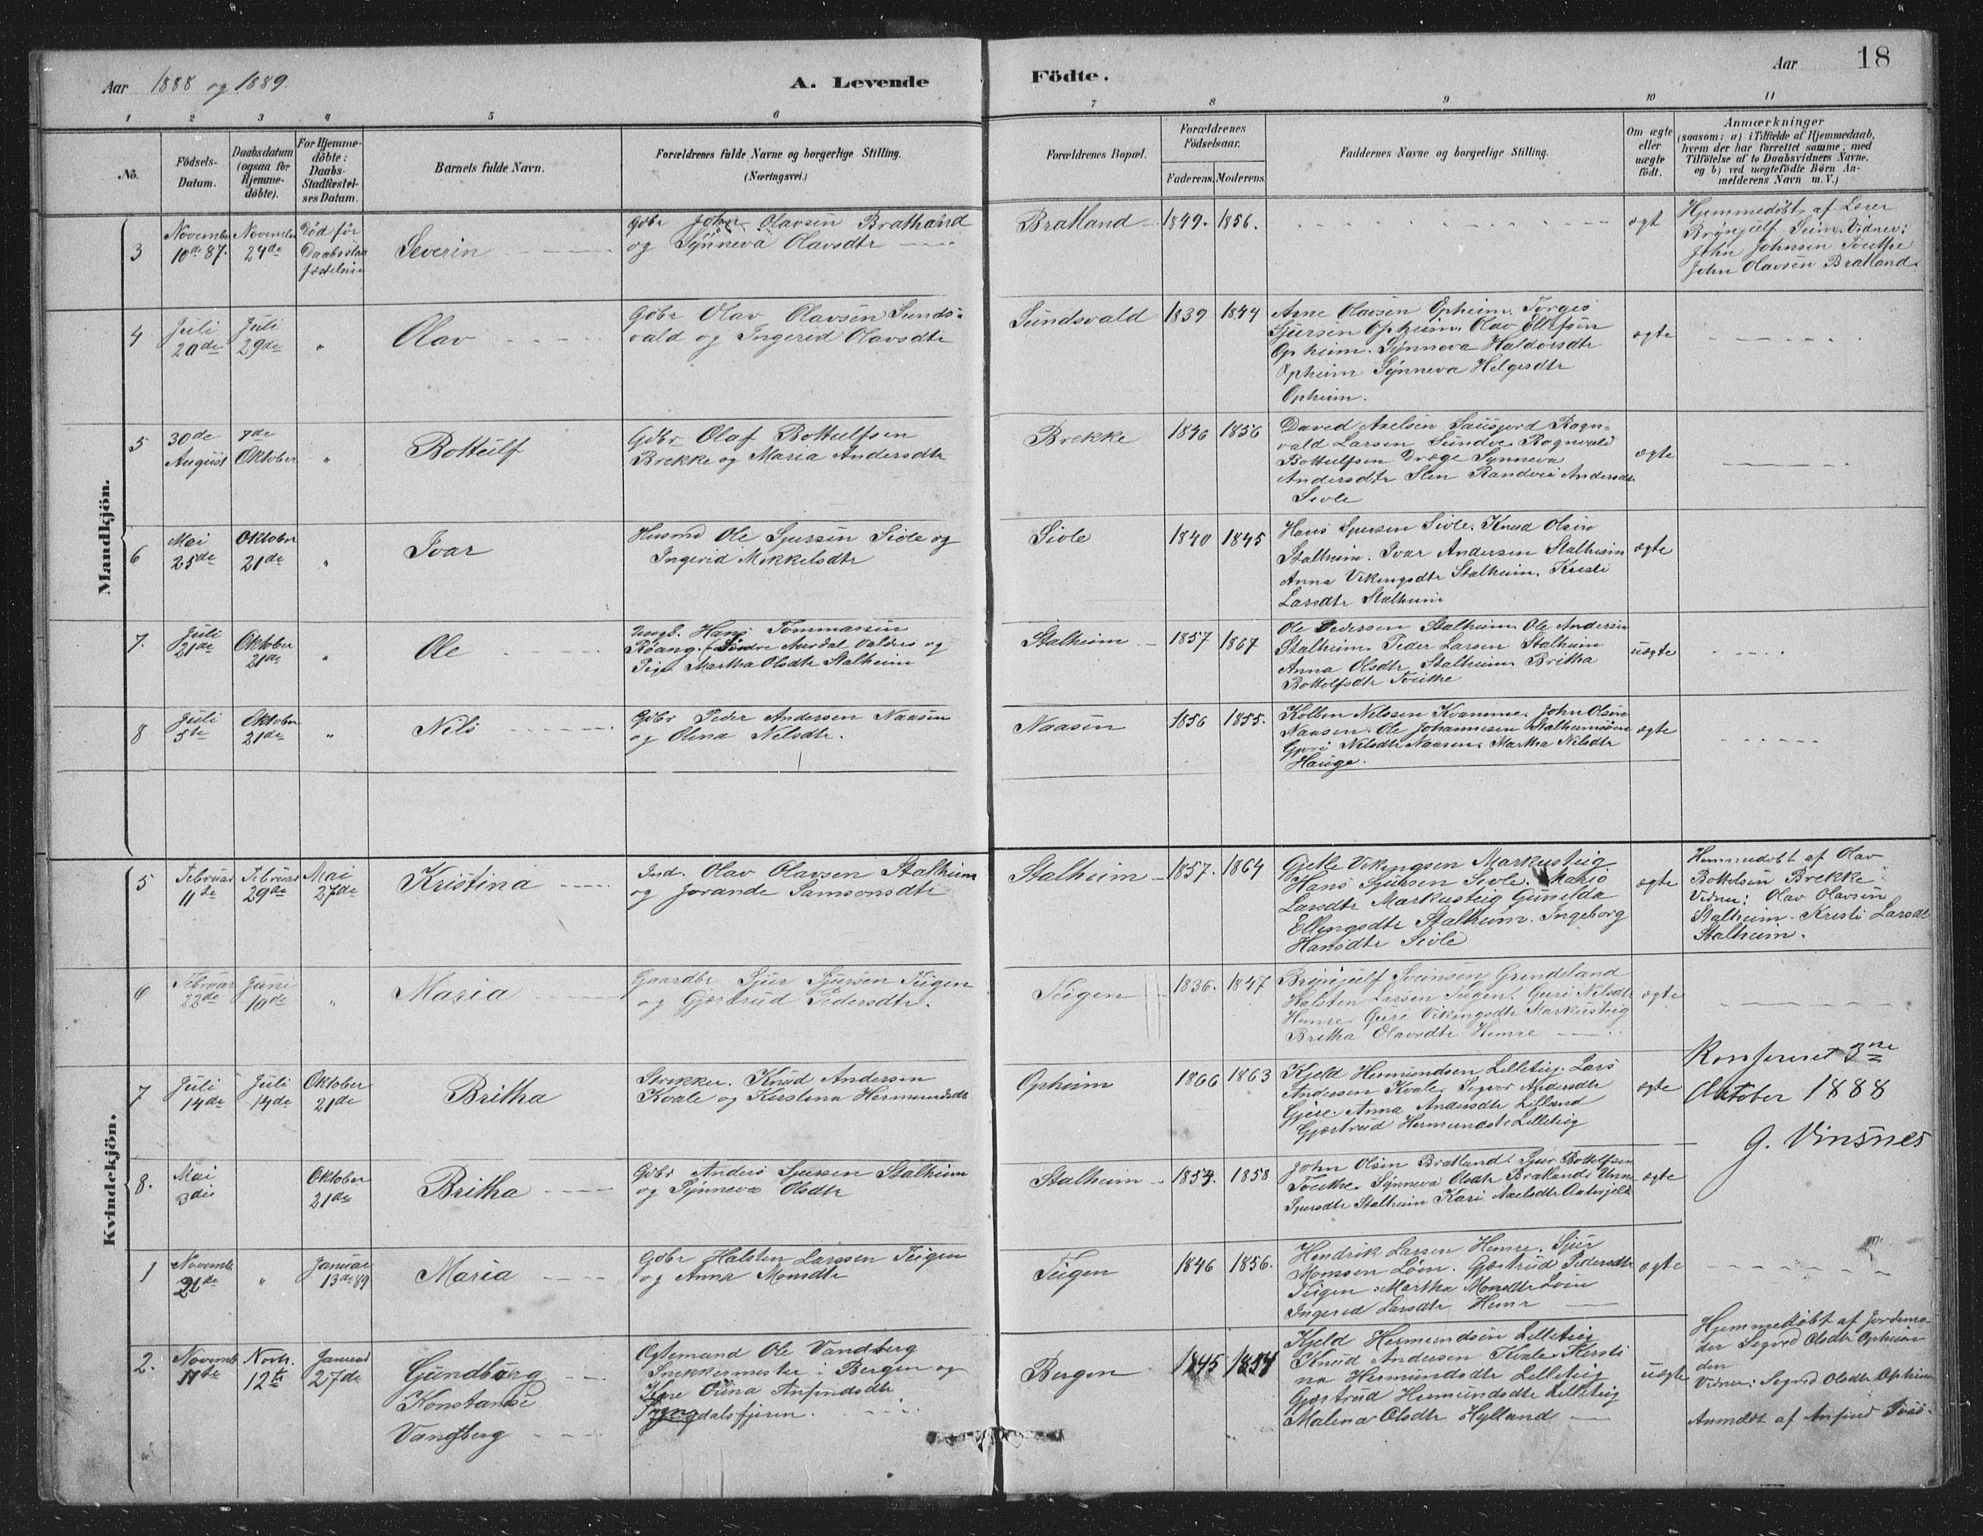 Aar 1888 og 1889.
A. Levende
Födte.
Aar
18
1
2
3
4
5
6
7
8
9
10
11
No.
Födsels-
Datum.
Daabsdatum
(ogsaa for
Hjemme-
döbte).
For Hjemme-
döbte:
Daabs-
Stadfæstel-
ses Datum.
Barnets fulde Navn.
Forældrenes fulde Navne og borgerlige Stilling.
(Næringsvei.)
Forældrenes Bopæl.
Forældrenes
Födselsaar.
Faderens.
Moderens.
Faddernes Navne og borgerlige Stilling.
Om ægte
eller
uægte
födt.
Anmærkninger
(saasom: a) i Tilfælde af Hjemmedaab,
hvem der har forrettet samme, med
Tilföielse af to Daabsvidners Navne,
og b) ved uægtefödte Börn An-
melderens Navn m. V.)
Mandkjön.
3
Novembr
10de 87.
Novembr
24de
Död før
Daabsstad
fæstelsen
Severin
Gbr John Olavsen Brathand
og Synneva Olavsdtr
Bratland
1849.
1856.
ægt
Hjemmedøbt af Lærer
Brynjulf Seim. Vidner:
John Johnsen Tvethe
John Olavsen Bratland.
4
Juli
20de
Juli
29de
"
Olav
Gdbr Olav Olavsen Sunds-
vald og Ingerid Olavsdtr
Sundsvald
1839
1844
Arne Olavsen Opheim. Torges
Sjursen Opheim. Olav Ellefsen
Opheim. Synneva Haldorsdtr
Opheim Synneva Helgesdtr
Opheim.
ægte
5
30de
August
7de
Oktober
"
Bottulf
Gdbr Olaf Bottulfsen
Brekke og Maria Andersdtr
Brekke
1846
1856
David Axelsen Ragn-
vald Larsen Sundve Ragnvald
Bottulfsen Dræge Synneva
Andersdtr Randvei Andersdtr
Sivle
ægte
6
Mai
25de
Oktober
21de
"
Ivar
Husmd Ole Sjursen Sivle og
Ingerid Mikkelsdtr
Sivle
1840
1845
Hans Sjursen Sivle. Knud Olsen
Stalheim. Ivar Andersen Stalheim
Anna Vikingsdtr Stalheim. Kristi
Larsdtr Stalheim
ægte
7.
Juli
21de
Oktober
21de
"
Ole
Ungk. Hans Tommassen
Roang. Søndre Aurdal Valders og
Pige Martha Olsdtr Stalheim
Stalheim
1857
1867
Ole Pedersen Stalheim Ole Andersen
Stalheim. Peder Larsen Stalheim
Anna Olsdtr Stalheim Britha
Bottolfsdtr Tvethe
uægte
8
Juli
5te
Oktober
21de
"
Nils
Gdbr Peder Andersen Naasen
og Olina Nilsdtr.
Naasen
1856
1855.
Kolben Nilssen Kvamme. John Olsen
Naasen. Ole Johannesen Stalheimsøen
Gjøri Nilsdtr Naasen. Martha Nilsdtr
Hauge.
ægte
Kvindekjön.
5
Februar
11te
Februar
29de
Mai
27de
Kristina
Ind. Olav Olavsen Stalheim
og Jorande Samsonsdtr
Stalheim
1857.
1864
Gjetle Vikingsen Markusteig
Hans Sjursen Sivle. Mario
Larsdtr Markusteig Gunilda
Ellingsdtr Stalheim. Ingeborg
Hansdtr Sivle
ægte
Hemmedøbt af Olav
Bottolsen Brekke
Vidner: Olav Olavsen
Stalheim. Kristi Larsdtr
Stalheim.
6
Februar
22de
Juni
10de
"
Maria
Gaardbr Sjur Sjursen Teigen
og Gjertrud Pedersdtr.
Teigen
1836.
1847
Brynjulf Sveinsen Grendeland
Halsten Larsen Teigen. Guri Nilsdtr
Hemre. Guri Vikingsdtr Markusteig
Britha Olavsdtr Hemre
ægte
7
Juli
14de
Juli
14de
Oktober
21de
Britha
Strekker. Knud Andersen
Kvale og Kirstina Hermundsdtr
Opheim
1866
1863
Kjeld Hermundsen Lilleteig. Lars
Andersen Kvale. Sigvor Andersdtr
Gjeire. Anna Andersdtr Lilland
Gjertrud Hermundsdtr Lilleteig
ægte
Konfereret 3ne
Oktober 1888
G. Vinsnes
8.
Mai
3die
Oktober
21de
Britha
Gdbr Anders Sjursen Stalheim
og Synneva Olsdtr
Stalheim
1853.
1858
John Olsen Bratland. Sjur Bottolfsen
Tvethe. Synneva Olsdtr Bratland. Unne
Sjursdtr Stalheim Kari Axelsdtr
ægte
1
Novembr
21de
"
Januar
13de 89
Maria
Gdbr Halsten Larssen Teigen
og Anna Monsdtr
Teigen
1846
1856.
Hendrik Larsen Hemre. Sjur
Monssen Løen. Gjertrud Pedersdtr
Teigen. Martha Monsdtr Løen
Ingerid Larsdtr Hemre
ægte
2.
Novembr
11te
Novbr.
12te
Januar
27de
Gundborg
Konstanse
Vandberg
Ægtemand Ole Vandberg
Snekkermester i Bergen og
Olina Anfindsdtr
Sogndalsfjeren.
Bergen
1845
1854
Kjeld Hermundsen Lilleteig
Knud Andersen Kvale. Kersti
na Hermundsdtr Lilleteig
Gjertrud Hermundsdtr Lilleteig
Malena Olsdtr Hylland
uægte
Hjemmedøbt af Jordemo-
der Sigvrd Olsdtr Opheim
den
Vidner: Sigvrd Olsdtr Opheim
Anmeldt af Anfind